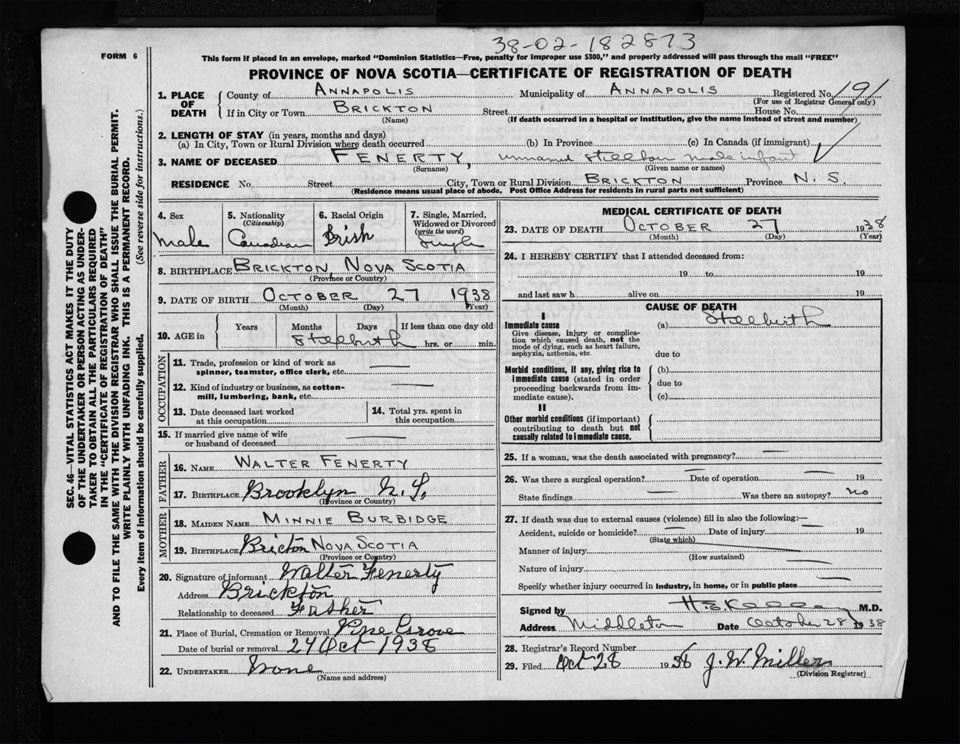 38-02-182873
FORM 6
This form if placed in an envelope, marked "Dominion Statistics—Free, penalty for improper use $300," and properly addressed will pass through the mail "FREE"
PROVINCE OF NOVA SCOTIA—CERTIFICATE OF REGISTRATION OF DEATH
1. PLACE OF DEATH
County of ANNAPOLIS Municipality of ANNAPOLIS Registered No. 191
(For use of Registrar General only)
If in City or Town BRICKTON Street House No.
(Name) (If death occurred in a hospital or institution, give the name instead of street and number)
2. LENGTH OF STAY (in years, months and days)
(a) In City, Town or Rural Division where death occurred (b) In Province (c) In Canada (if immigrant)
3. NAME OF DECEASED FENERTY, unnamed stillborn male infant
(Surname) (Given name or names)
RESIDENCE No. Street City, Town or Rural Division BRICKTON Province N. S.
(Residence means usual place of abode. Post Office Address for residents in rural parts not sufficient)
4. Sex
male
5. Nationality (Citizenship)
Canadian
6. Racial Origin
Irish
7. Single, Married, Widowed or Divorced (write the word)
Single
8. BIRTHPLACE BRICKTON, NOVA SCOTIA
(Province or Country)
9. DATE OF BIRTH OCTOBER 27 1938
(Month) (Day) (Year)
10. AGE in Years Months Days If less than one day old
Stillbirth hrs. or min.
OCCUPATION
11. Trade, profession or kind of work as spinner, teamster, office clerk, etc.
12. Kind of industry or business, as cotton-mill, lumbering, bank, etc.
13. Date deceased last worked at this occupation
14. Total yrs. spent in this occupation
15. If married give name of wife or husband of deceased
FATHER
16. NAME WALTER FENERTY
17. BIRTHPLACE Brooklyn N.S.
(Province or Country)
MOTHER
18. MAIDEN NAME MINNIE BURBIDGE
19. BIRTHPLACE Bricton NOVA SCOTIA
(Province or Country)
20. Signature of informant Walter Fenerty
Address Brickton
Relationship to deceased Father
21. Place of Burial, Cremation or Removal Pine Grove
Date of burial or removal 27 Oct 1938
22. UNDERTAKER None
(Name and address)
MEDICAL CERTIFICATE OF DEATH
23. DATE OF DEATH OCTOBER 27 1938
(Month) (Day) (Year)
24. I HEREBY CERTIFY that I attended deceased from:
19 to 19
and last saw h alive on 19
CAUSE OF DEATH
I
Immediate cause (a) Stillbirth
Give disease, injury or complication which caused death, not the mode of dying, such as heart failure, asphyxia, asthenia, etc.
due to
Morbid conditions, if any, giving rise to immediate cause (stated in order proceeding backwards from immediate cause).
(b)
due to
(c)
II
Other morbid conditions (if important) contributing to death but not causally related to immediate cause.
25. If a woman, was the death associated with pregnancy?
26. Was there a surgical operation? Date of operation 19
State findings Was there an autopsy? no
27. If death was due to external causes (violence) fill in also the following:—
Accident, suicide or homicide? Date of injury 19
(State which)
Manner of injury
(How sustained)
Nature of injury
Specify whether injury occurred in industry, in home, or in public place
Signed by M.D.
Address Middleton Date October 28 1938
28. Registrar's Record Number
29. Filed Oct 28 1938 J. W. Miller
(Division Registrar)
SEC. 46—VITAL STATISTICS ACT MAKES IT THE DUTY
OF THE UNDERTAKER OR PERSON ACTING AS UNDERTAKER
TO OBTAIN ALL THE PARTICULARS REQUIRED
IN THE "CERTIFICATE OF REGISTRATION OF DEATH"
AND TO FILE THE SAME WITH THE DIVISION REGISTRAR WHO SHALL ISSUE THE BURIAL PERMIT.
WRITE PLAINLY WITH UNFADING INK. THIS IS A PERMANENT RECORD.
Every item of information should be carefully supplied. (See reverse side for instructions.)